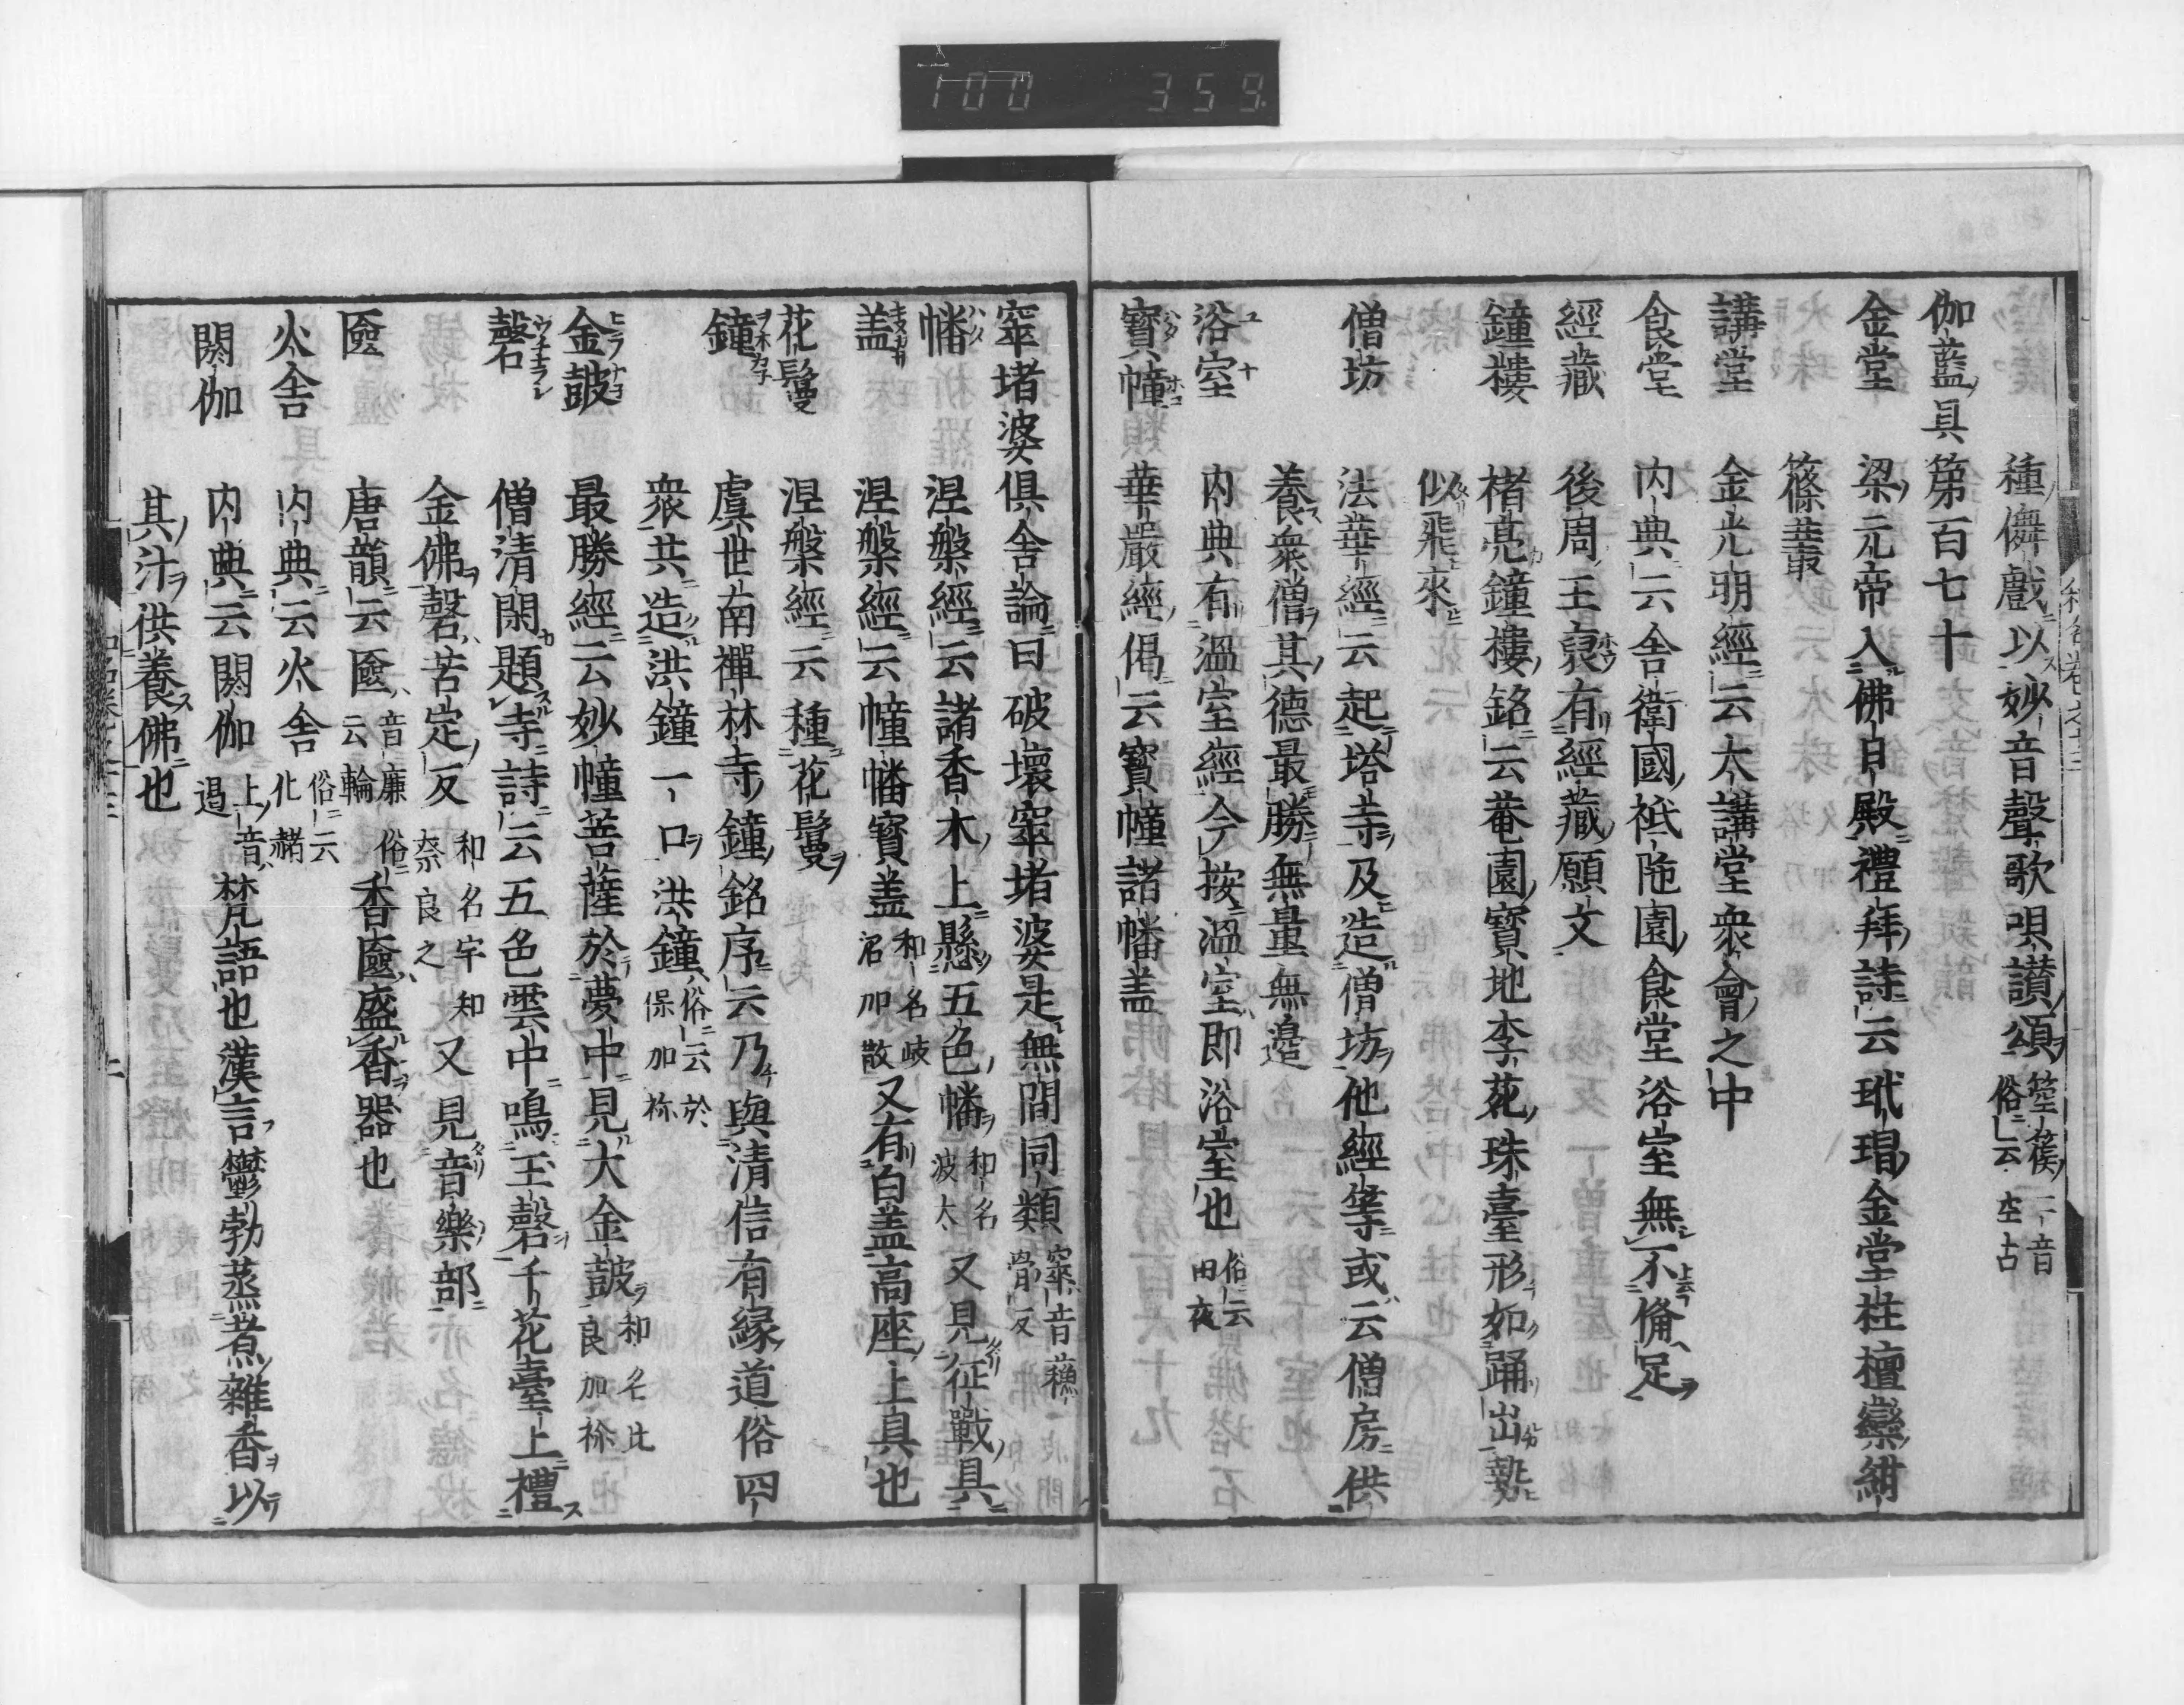 100 359.
種儛戲以妙音聲歌唄讃頌箜篌二音俗云空古
伽藍具第百七十
金堂 梁元帝入佛日殿禮拜詩云玳瑁金堂柱檀欒紺
篠叢
講堂 金光明經云大講堂衆會之中
食堂 内典云舎衛國祇陁園食堂浴室無不備足
經藏 後周王裒有經藏願文
鐘樓 楮亮鐘樓銘云菴園寶地李花珠臺形如踊出勢
似飛來
僧坊 法華經云起塔寺及造僧坊他經等或云僧房供
養衆僧其德最勝無量無邊
浴室 内典有溫室經今按溫室即浴室也俗云由夜
寶幢 華嚴經偈云寶幢諸幡盖
窣堵婆 俱舎論曰破壞窣堵婆是無間同類窣音蘓骨反
幡 涅槃經云諸香木上懸五色幡和名波太又見征戰具
盖 涅槃經云幢幡寶盖和名岐沼加散又有白盖高座上具也
花鬘 涅槃經云種花鬘
鐘 虞世南禪林寺鐘銘序云乃與清信有緣道俗四
衆共造洪鐘一口洪鐘俗云於保加祢
金鼓 最勝經云妙幢菩薩於夢中見大金鼓和名比良加祢
磬 僧清閑題寺詩云五色雲中鳴玉磬千花臺上禮
金佛磬苦定反和名宇知奈良之又見音樂部
匳 唐韻云匳音廉俗云輪香匳盛香器也
火舎 内典云火舎俗云化赭
閼伽 内典云閼伽上音遏梵語也漢言鬱勃蒸煮雜香以
其汁供養佛也